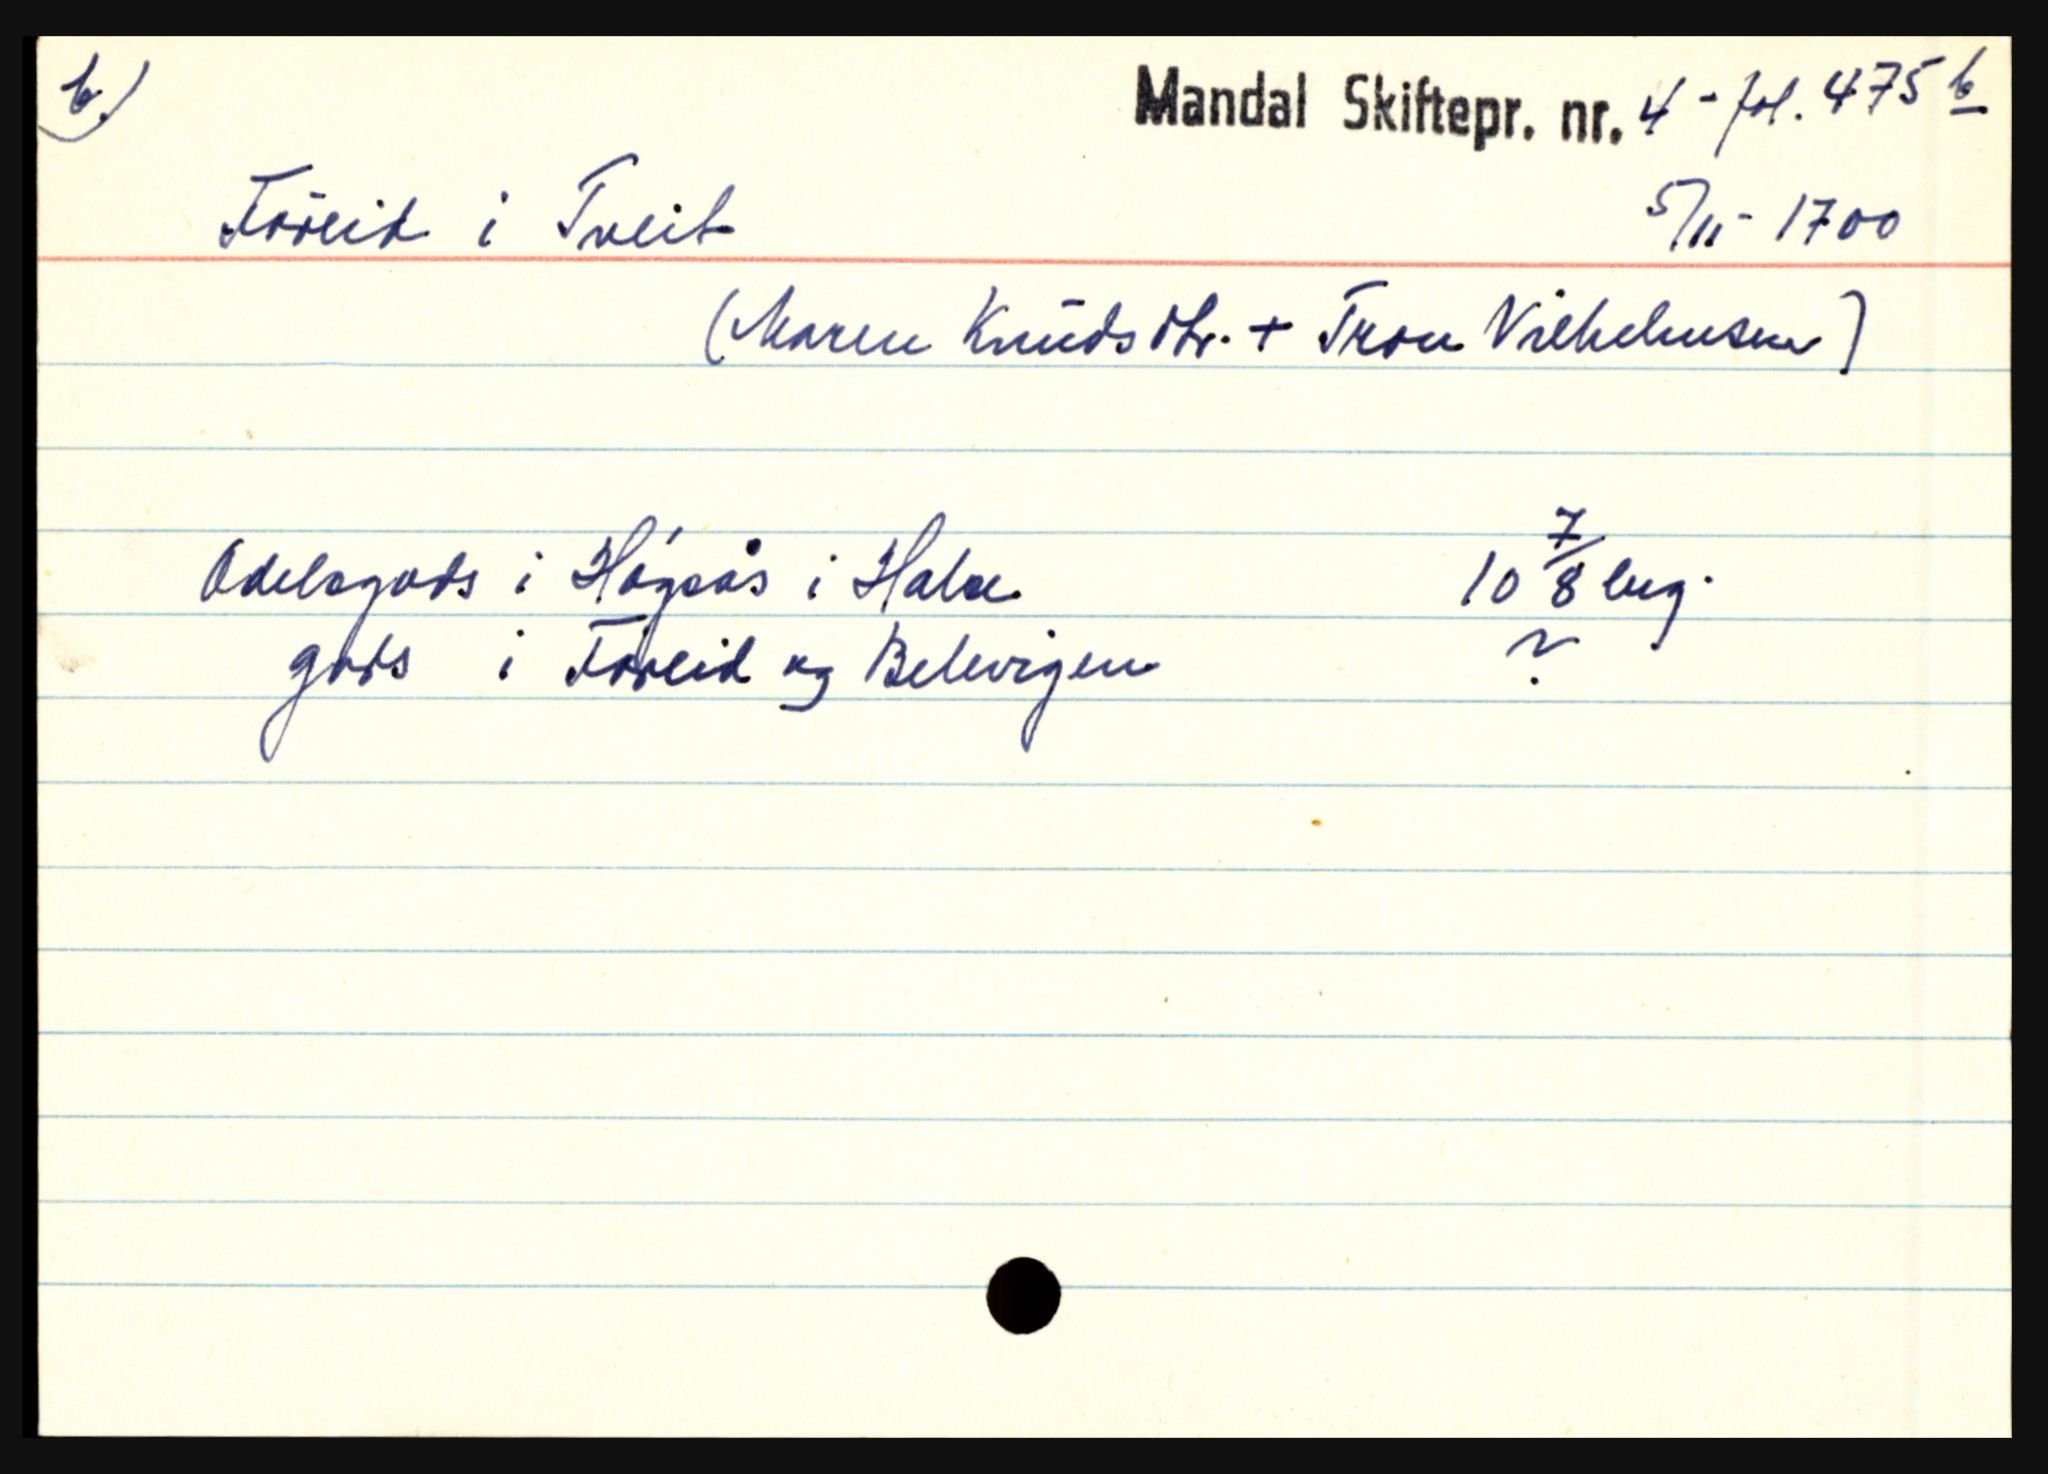 b)
Mandal Skiftepr. nr. 4 - fol. 475 b
Føreid i Tveit 5/11 - 1700
(Maren Knudsdtr. + Tron Vilhelmsen)
Odelsgods i Høgsås i Halse 10 7/8 lug.
gods i Føreid og Belevigen ?